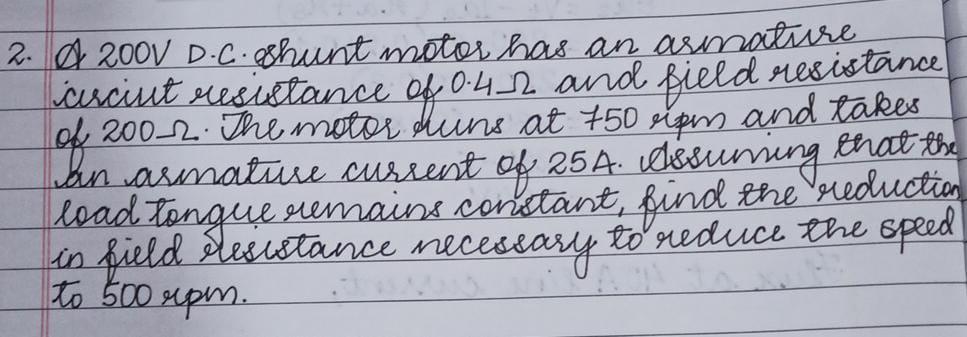 2. A 200V D.C. shunt motor has an armature
circiut resistance of 0.4Ω and field resistance
of 200Ω. The motor runs at 750 rpm and takes
an armature current of 25A. Assuming that the
load tongue remains constant, find the reduction
in field resistance necessary to reduce the speed
to 500 rpm.